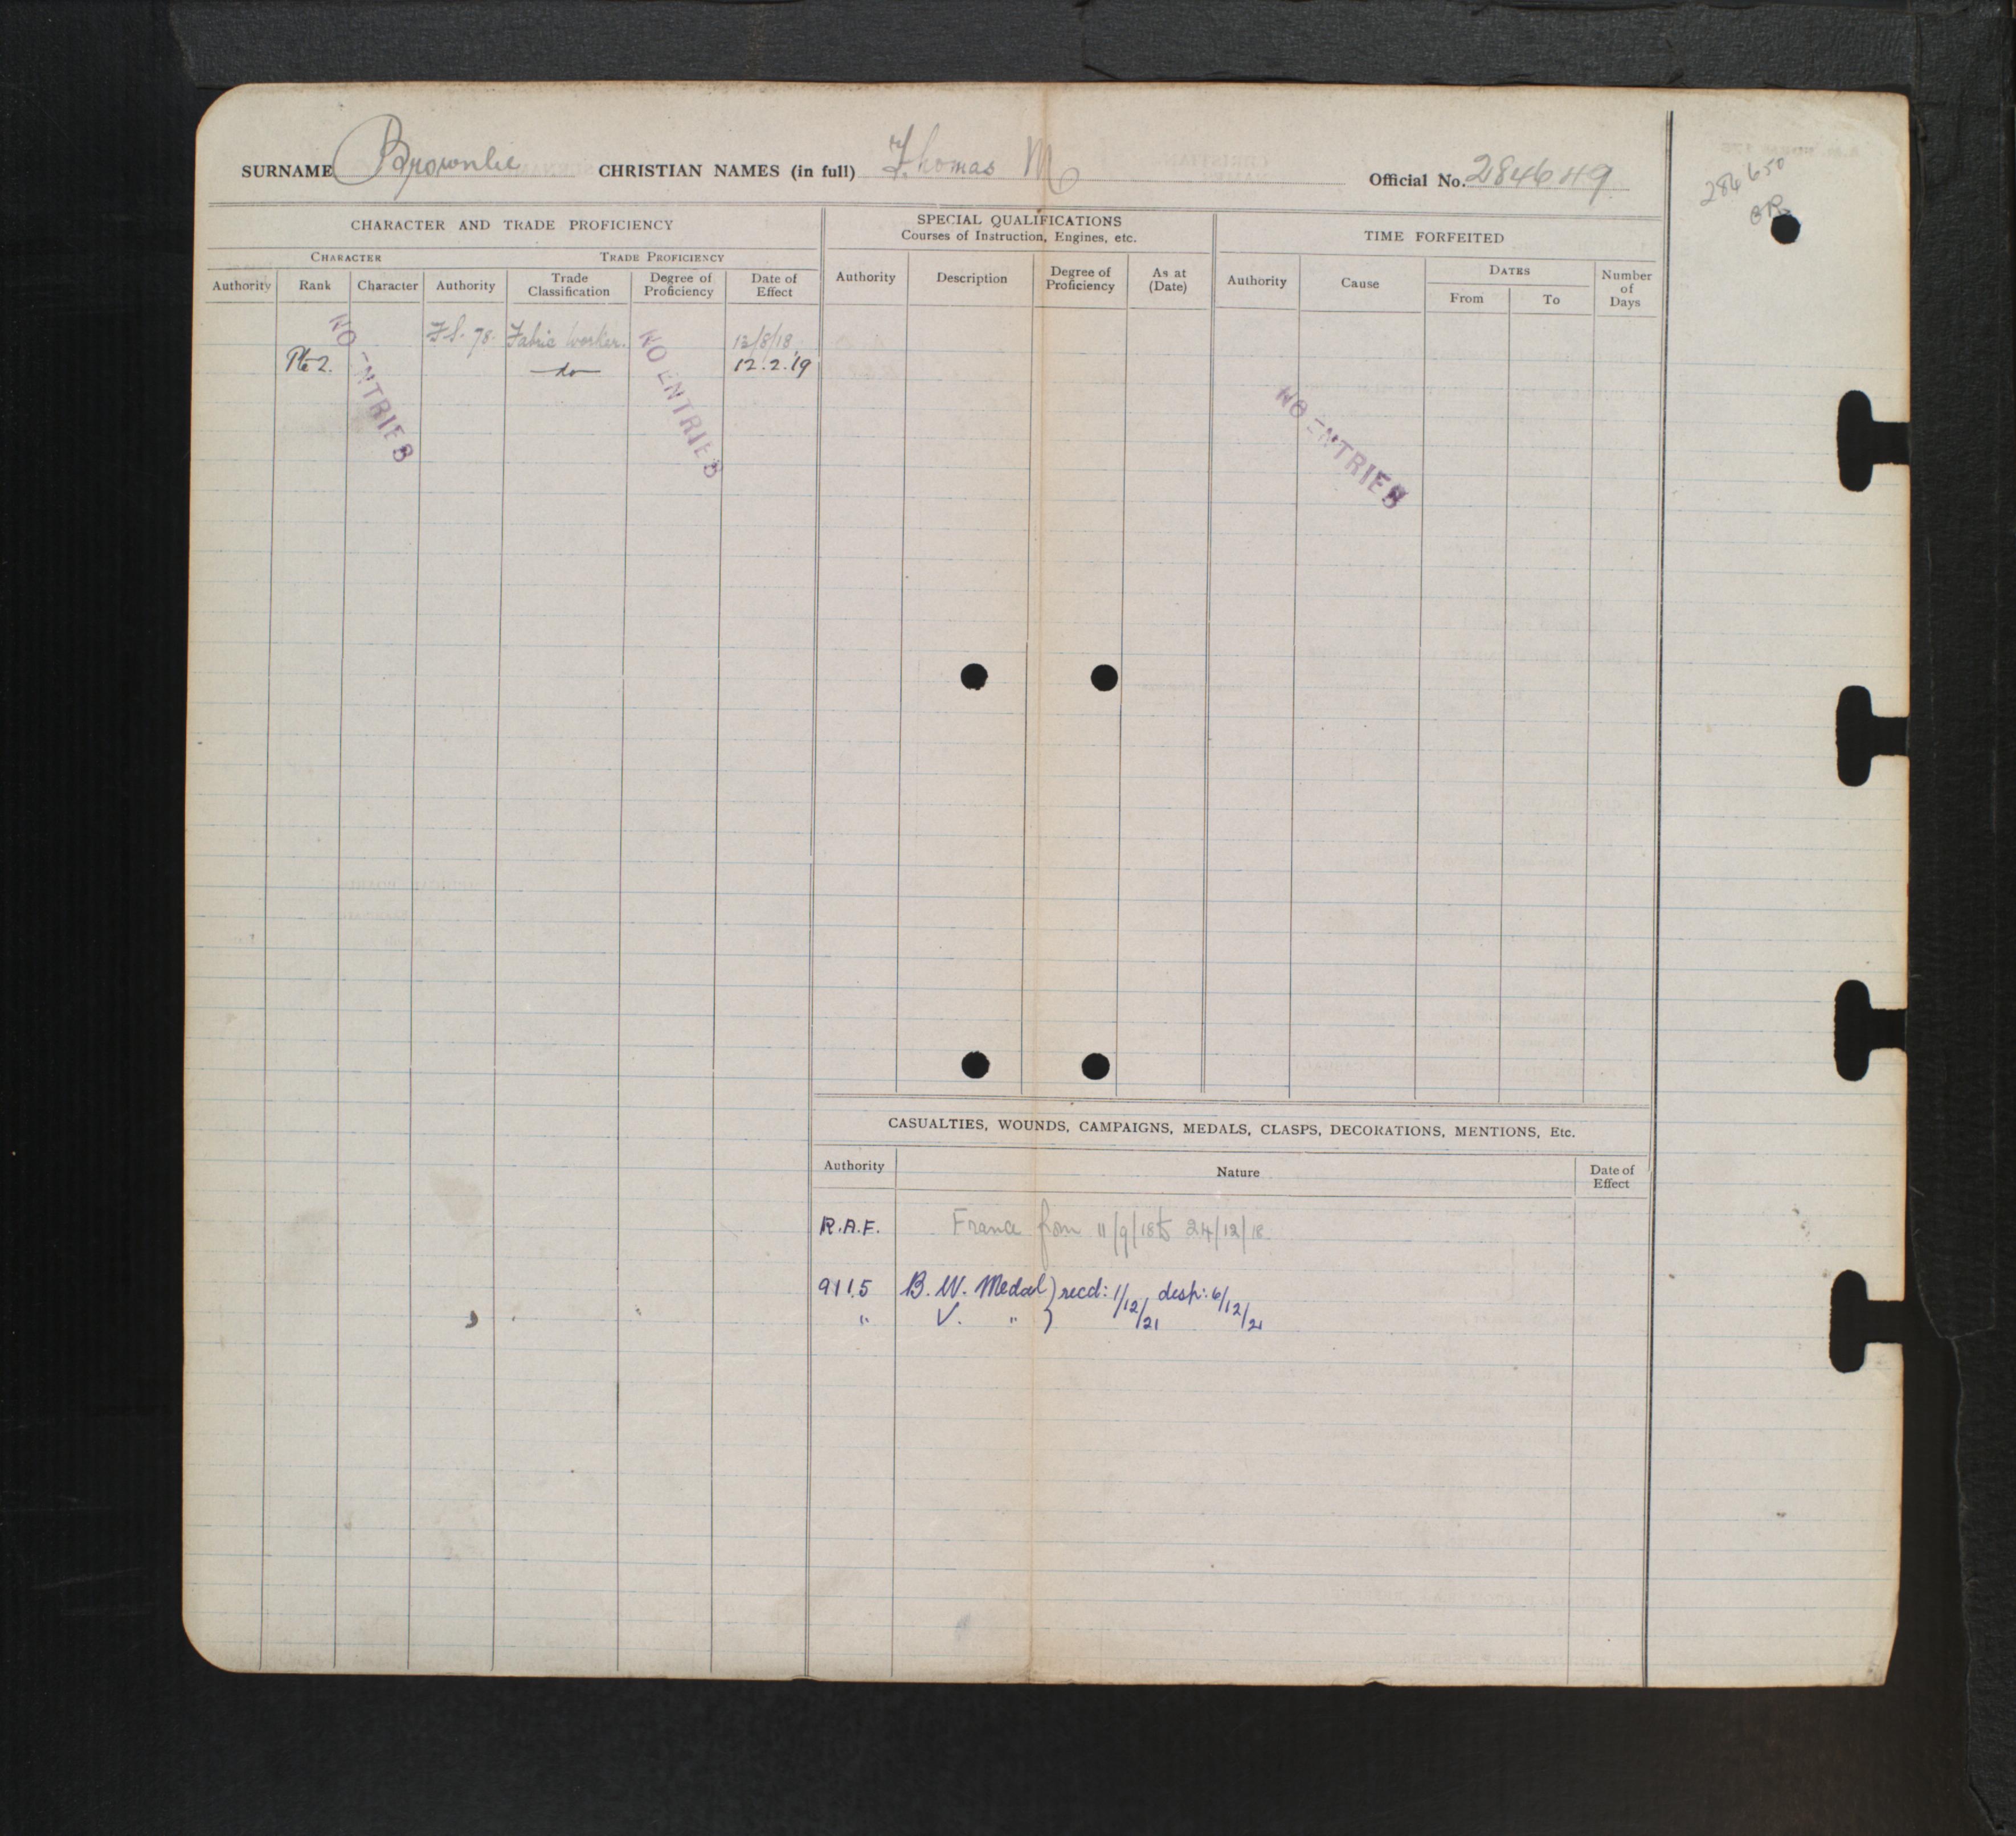 SURNAME Brownlie CHRISTIAN NAMES (in full) Thomas M Official No. 284649
284650
CHARACTER AND TRADE PROFICIENCY
CHARACTER TRADE PROFICIENCY
Authority Rank Character Authority Trade Classification Degree of Proficiency Date of Effect
SPECIAL QUALIFICATIONS
Courses of Instruction, Engines, etc.
Authority Description Degree of Proficiency As at (Date)
TIME FORFEITED
Authority Cause DATES From To Number of Days
78. Fabric Worker. 12/8/18
Pte 2. do 12.2.19
NO ENTRIES
NO ENTRIES
NO ENTRIES
CASUALTIES, WOUNDS, CAMPAIGNS, MEDALS, CLASPS, DECORATIONS, MENTIONS, Etc.
Authority Nature Date of Effect
R.A.F. France from 11/9/18 to 24/12/18
9115 B. W. Medal } recd: 1/12/21 desp: 6/12/21
" V. " }